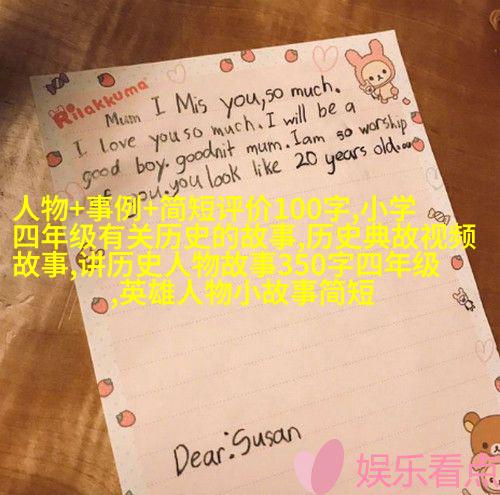 Rilakkuma
Mum I Mis you,so much.
I love you so much. I will be a
good boy. goodnit mum. I am so worship
of you. you look like 20 years old.
人物+事例+简短评价100字,小学
四年级有关历史的故事,历史典故视频
故事,讲历史人物故事350字四年级
,英雄人物小故事简短
Dear:Susan
娱乐看点